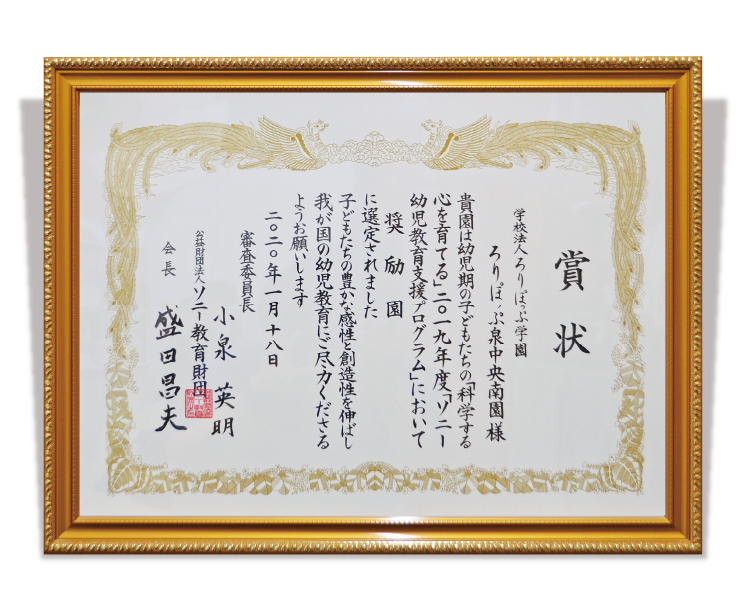 賞状
学校法人ろりぽっぷ学園
ろりぽっぷ泉中央南園様
貴園は幼児期の子どもたちの「科学する
心を育てる」二〇一九年度「ソニー
幼児教育支援プログラム」において
奨励園
に選定されました
子どもたちの豊かな感性と創造性を伸ばし
我が国の幼児教育にご尽力くださる
ようお願いします
二〇二〇年一月十八日
審査委員長
小泉英明
公益財団法人ソニー教育財団
会長
盛田昌夫